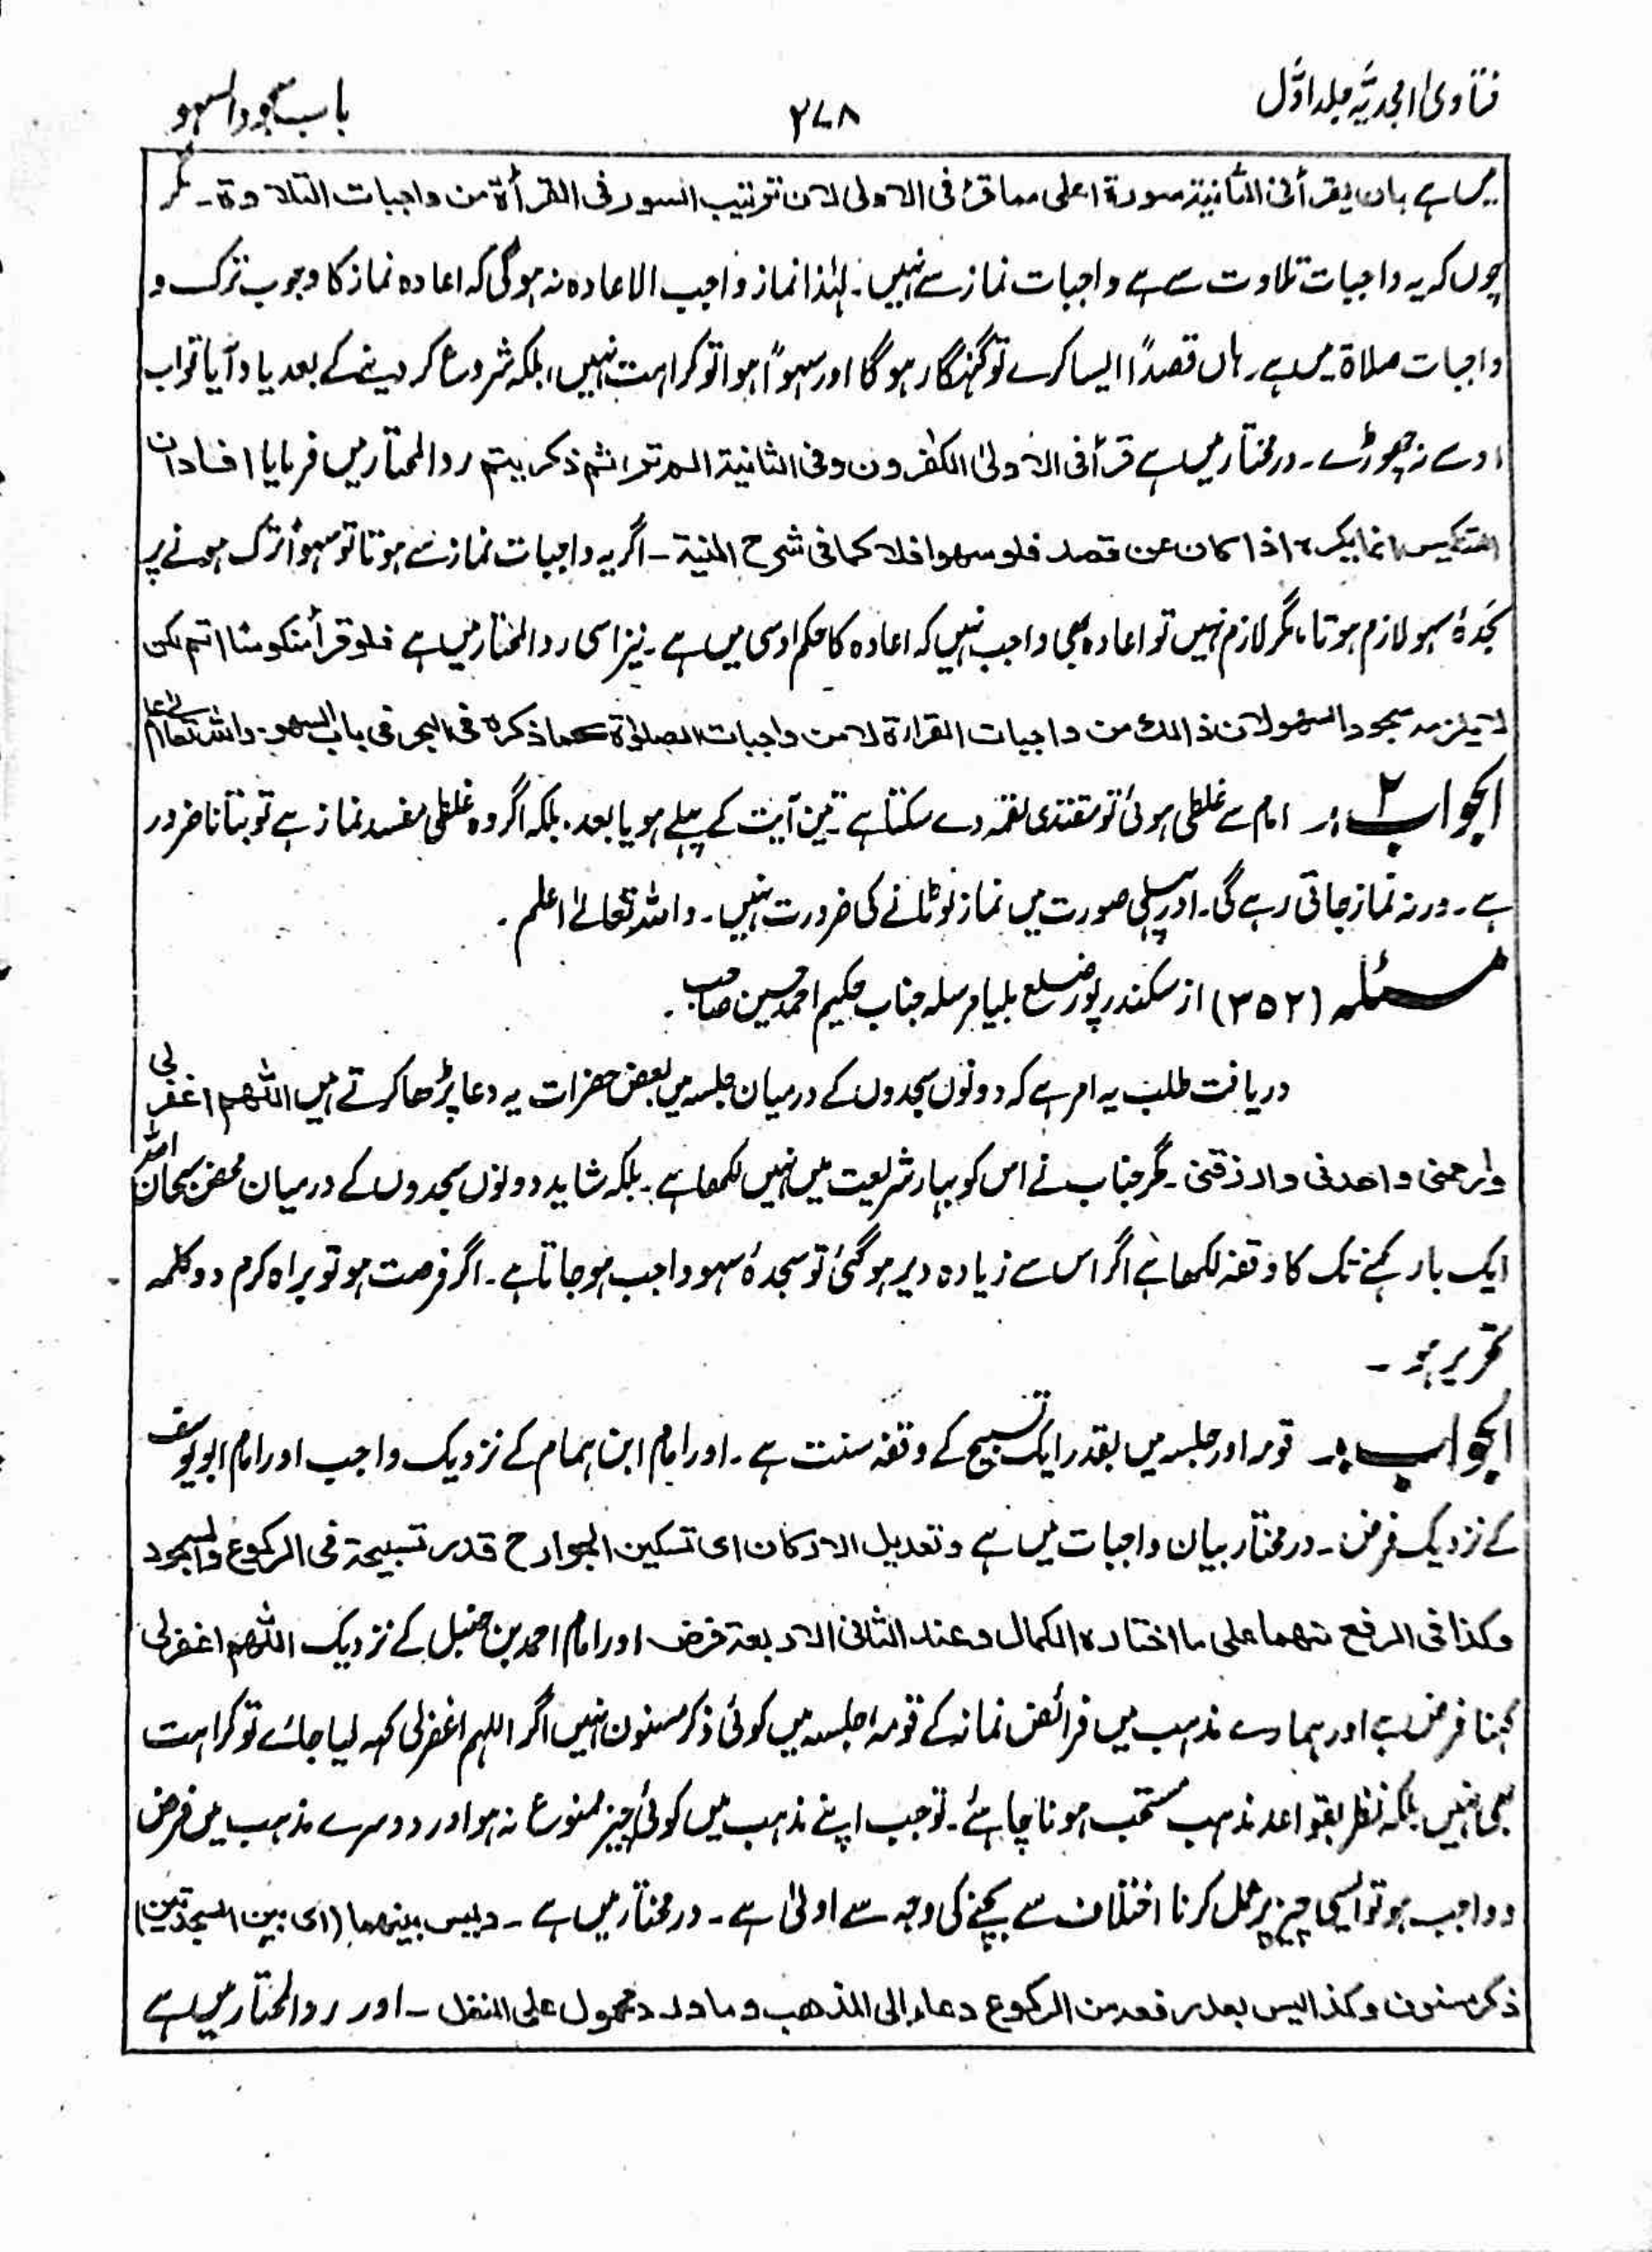 فتاویٰ امجدیّہ جلد اوّل
۲۷۸
باب سجود السہو
میں ہے بان یقرأ فی الثانیۃ سورۃ اعلی مما قرئ فی الاولی لان ترتیب السور فی القرأۃ من واجبات التلاوۃ ۔ مگر
چوں کہ یہ واجبات تلاوت سے ہے واجبات نماز سے نہیں ۔ لہٰذا نماز واجب الاعادہ نہ ہوگی کہ اعادہ نماز کا وجوب ترک و
واجبات صلاۃ میں ہے ۔ ہاں قصداً ایسا کرے تو گنہگار ہوگا اور سہواً ہوا تو کراہت نہیں، بلکہ شروع کر دینے کے بعد یاد آیا تو اب
اوسے نہ چھوڑے ۔ درمختار میں ہے قرأ فی الاولیٰ الکٰفرون وفی الثانیۃ الم تر اثم ذکر یتم ردالمحتار میں فرمایا افاد ان
التنکیس انما یکرہ اذا کان عن قصد فلو سھوا فلا کما فی شرح المنیۃ ۔ اگر یہ واجبات نماز سے ہوتا تو سہواً ترک ہونے پر
سجدۂ سہو لازم ہوتا ، مگر لازم نہیں تو اعادہ بھی واجب نہیں کہ اعادہ کا حکم اوسی میں ہے ۔ نیز اسی ردالمحتار میں ہے فلو قرأ منکوسا اثم لکن
لا یلزمہ سجود السھو لان ذالک من واجبات القراءۃ لا من واجبات الصلوٰۃ کما ذکرہ فی البحر فی باب السھو ۔ واللہ تعالیٰ اعلم
الجواب ۲ :۔ امام سے غلطی ہوئی تو مقتدی لقمہ دے سکتا ہے تین آیت کے پہلے ہو یا بعد ۔ بلکہ اگر وہ غلطی مفسد نماز ہے تو بتانا ضرور
ہے ۔ ورنہ نماز جاتی رہے گی ۔ اور پہلی صورت میں نماز لوٹانے کی ضرورت نہیں ۔ واللہ تعالیٰ اعلم ۔
مسئلہ (۳۵۲) از سکندر پور ضلع بلیا مرسلہ جناب حکیم احمد حسین صاحب ۔
دریافت طلب یہ امر ہے کہ دونوں سجدوں کے درمیان جلسہ میں بعض حضرات یہ دعا پڑھا کرتے ہیں اللّٰھم اغفر لی
وارحمنی واھدنی وارزقنی ۔ مگر جناب نے اس کو بہار شریعت میں نہیں لکھا ہے ۔ بلکہ شاید دونوں سجدوں کے درمیان محض سبحان اللہ
ایک بار کہنے تک کا وقفہ لکھا ہے اگر اس سے زیادہ دیر ہو گئی تو سجدۂ سہو واجب ہو جاتا ہے ۔ اگر فرصت ہو تو براہ کرم دو کلمہ
تحریر ہو ۔
الجواب :۔ قومہ اور جلسہ میں بقدر ایک تسبیح کے وقفہ سنت ہے ۔ اور امام ابن ہمام کے نزدیک واجب اور امام ابو یوسف
کے نزدیک فرض ۔ درمختار بیان واجبات میں ہے وتعدیل الارکان ای تسکین الجوارح قدر تسبیحۃ فی الرکوع والسجود
وکذا فی الرفع منھما علی ما اختارہ الکمال وعند الثانی الاربعۃ فرض اور امام احمد بن حنبل کے نزدیک اللّٰھم اغفر لی
کہنا فرض ہے اور ہمارے مذہب میں فرائض نماز کے قومہ ، جلسہ میں کوئی ذکر مسنون نہیں اگر اللہم اغفر لی کہہ لیا جائے تو کراہت
بھی نہیں بلکہ نظر بقواعد مذہب مستحب ہونا چاہئے ۔ تو جب اپنے مذہب میں کوئی چیز ممنوع نہ ہو اور دوسرے مذہب میں فرض
و واجب ہو تو ایسی چیز پر عمل کرنا اختلاف سے بچنے کی وجہ سے اولیٰ ہے ۔ درمختار میں ہے ۔ ولیس بینھما (ای بین السجدتین)
ذکر مسنون وکذا لیس بعد رفعہ من الرکوع دعاء الی المذھب وما ورد محمول علی النفل ۔ اور ردالمحتار میں ہے